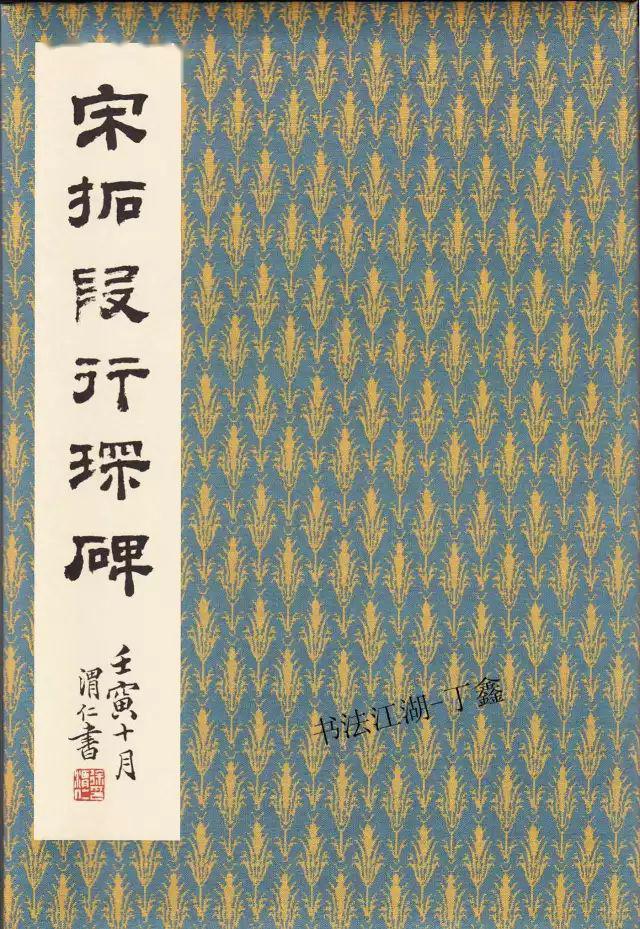 宋拓段行琛碑
壬寅十月
渭仁書
徐渭仁印
书法江湖-丁鑫